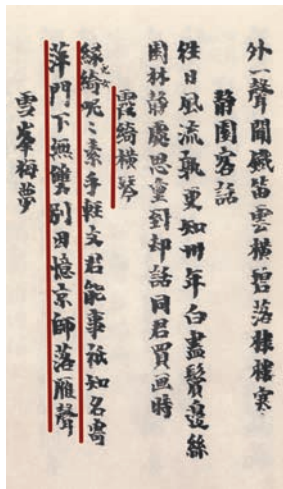 外一聲聞鐵笛雲橫碧落樓寒
静園客話
往日風流孰更知卅年白盡鬢邊絲
園林静處思重到却話同君買画時
霞綺横琴
綠綺兒女呢〻素手輕文君能事祗知名寄
萍門下無雙別因憶京師落雁聲
雪峯梅夢